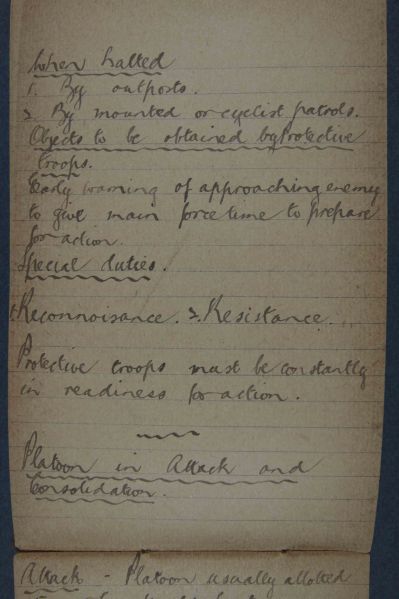 When halted
1. By outposts.
2. By mounted or cyclist patrols.
Objects to be obtained by Protective
troops.
Early warning of approaching enemy
to give main force time to prepare
for action.
Special duties.
1. Reconnoisance. 2. Resistance.
Protective troops must be constantly
in readiness for action.
Platoon in Attack and
Consolidation.
Attack - Platoon usually allotted